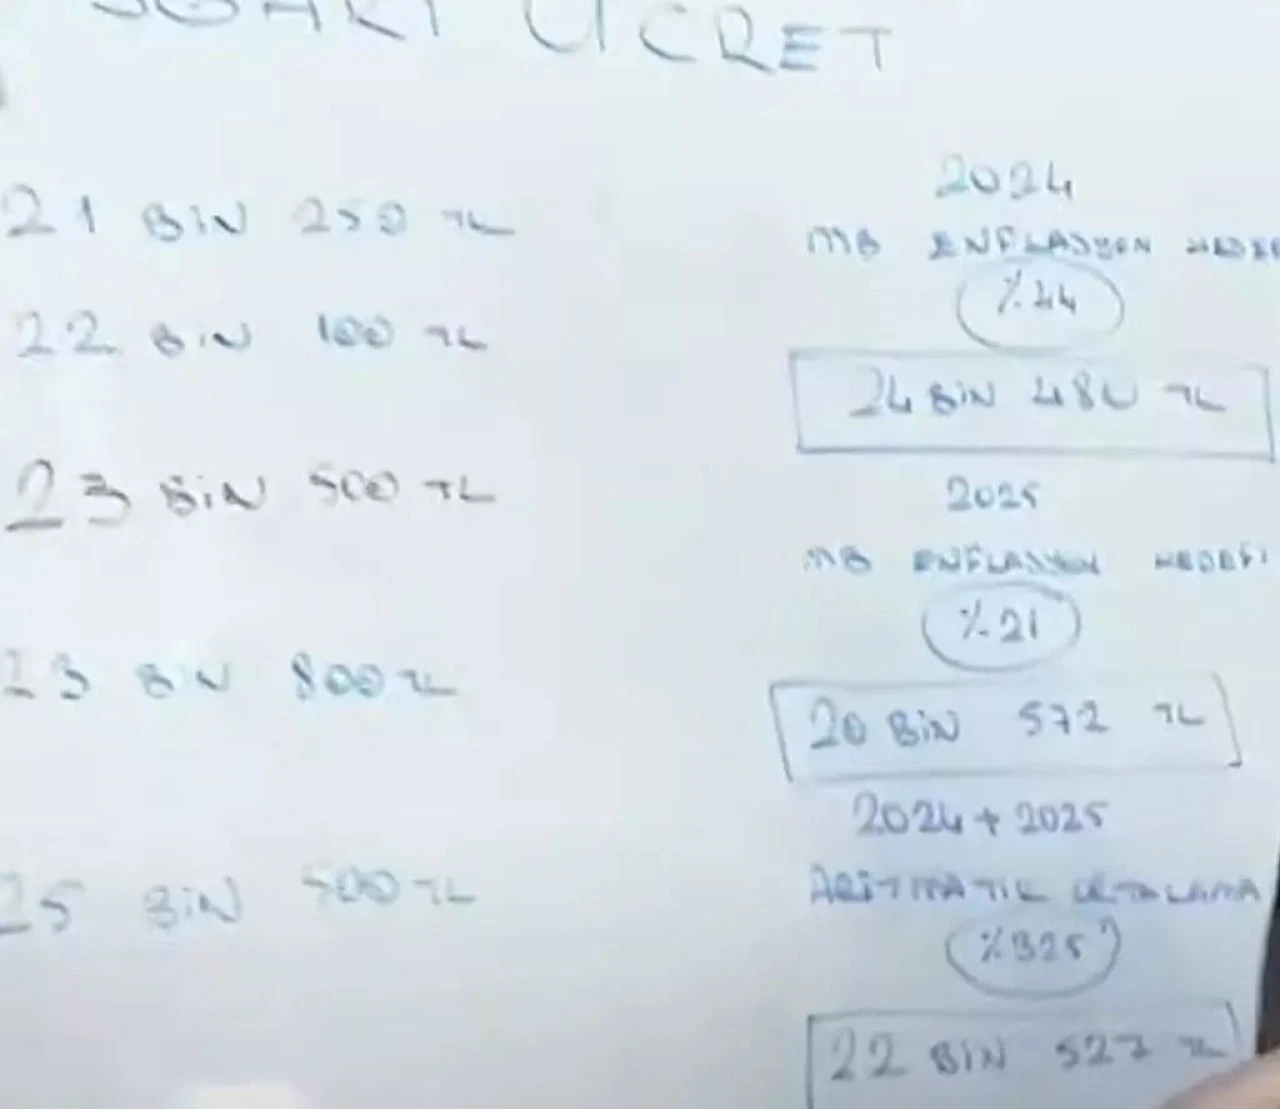 ÜCRET
21 BİN 250 TL
22 BİN 100 TL
23 BİN 500 TL
23 BİN 800 TL
25 BİN 500 TL
2024
MB ENFLASYON HEDEF
%44
24 BİN 480 TL
2025
MB ENFLASYON HEDEFİ
%21
20 BİN 572 TL
2024 + 2025
ARİTMATİK ORTALAMA
%325
22 BİN 527 TL